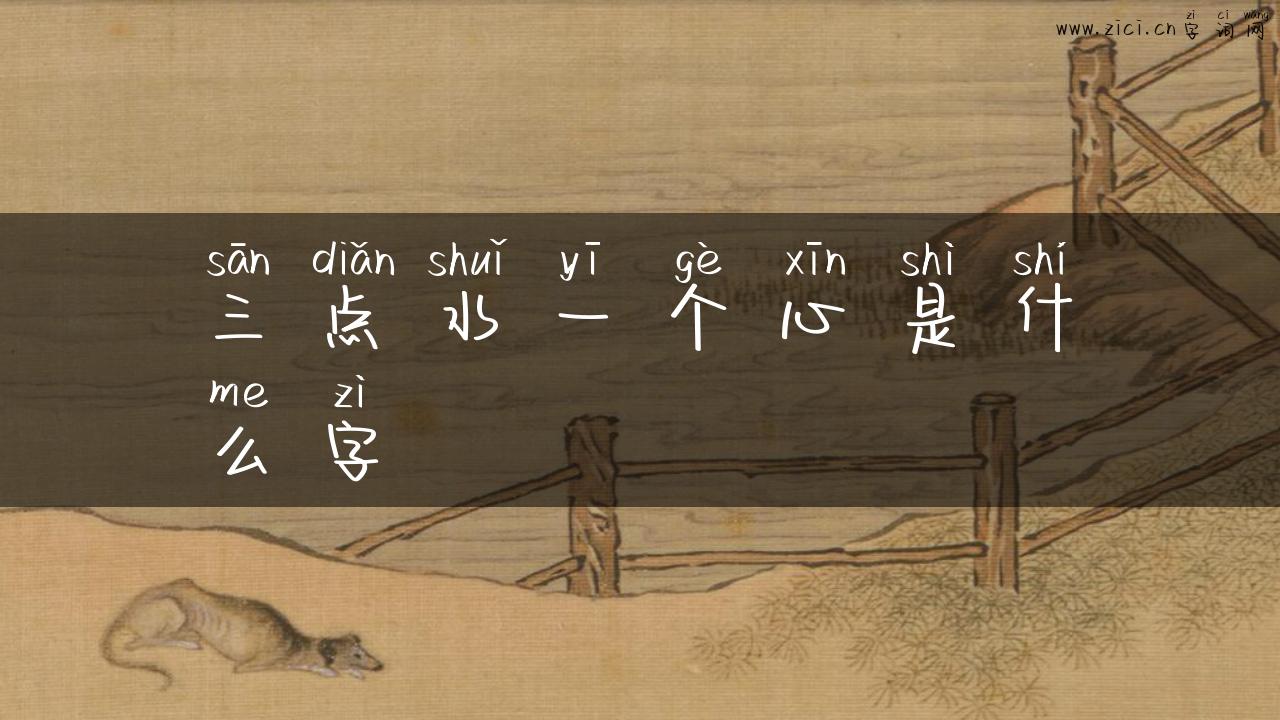 zi ci wang
www.zici.cn 字词网
sān diǎn shuǐ yī gè xīn shì shí
三点水一个心是什
me zì
么字